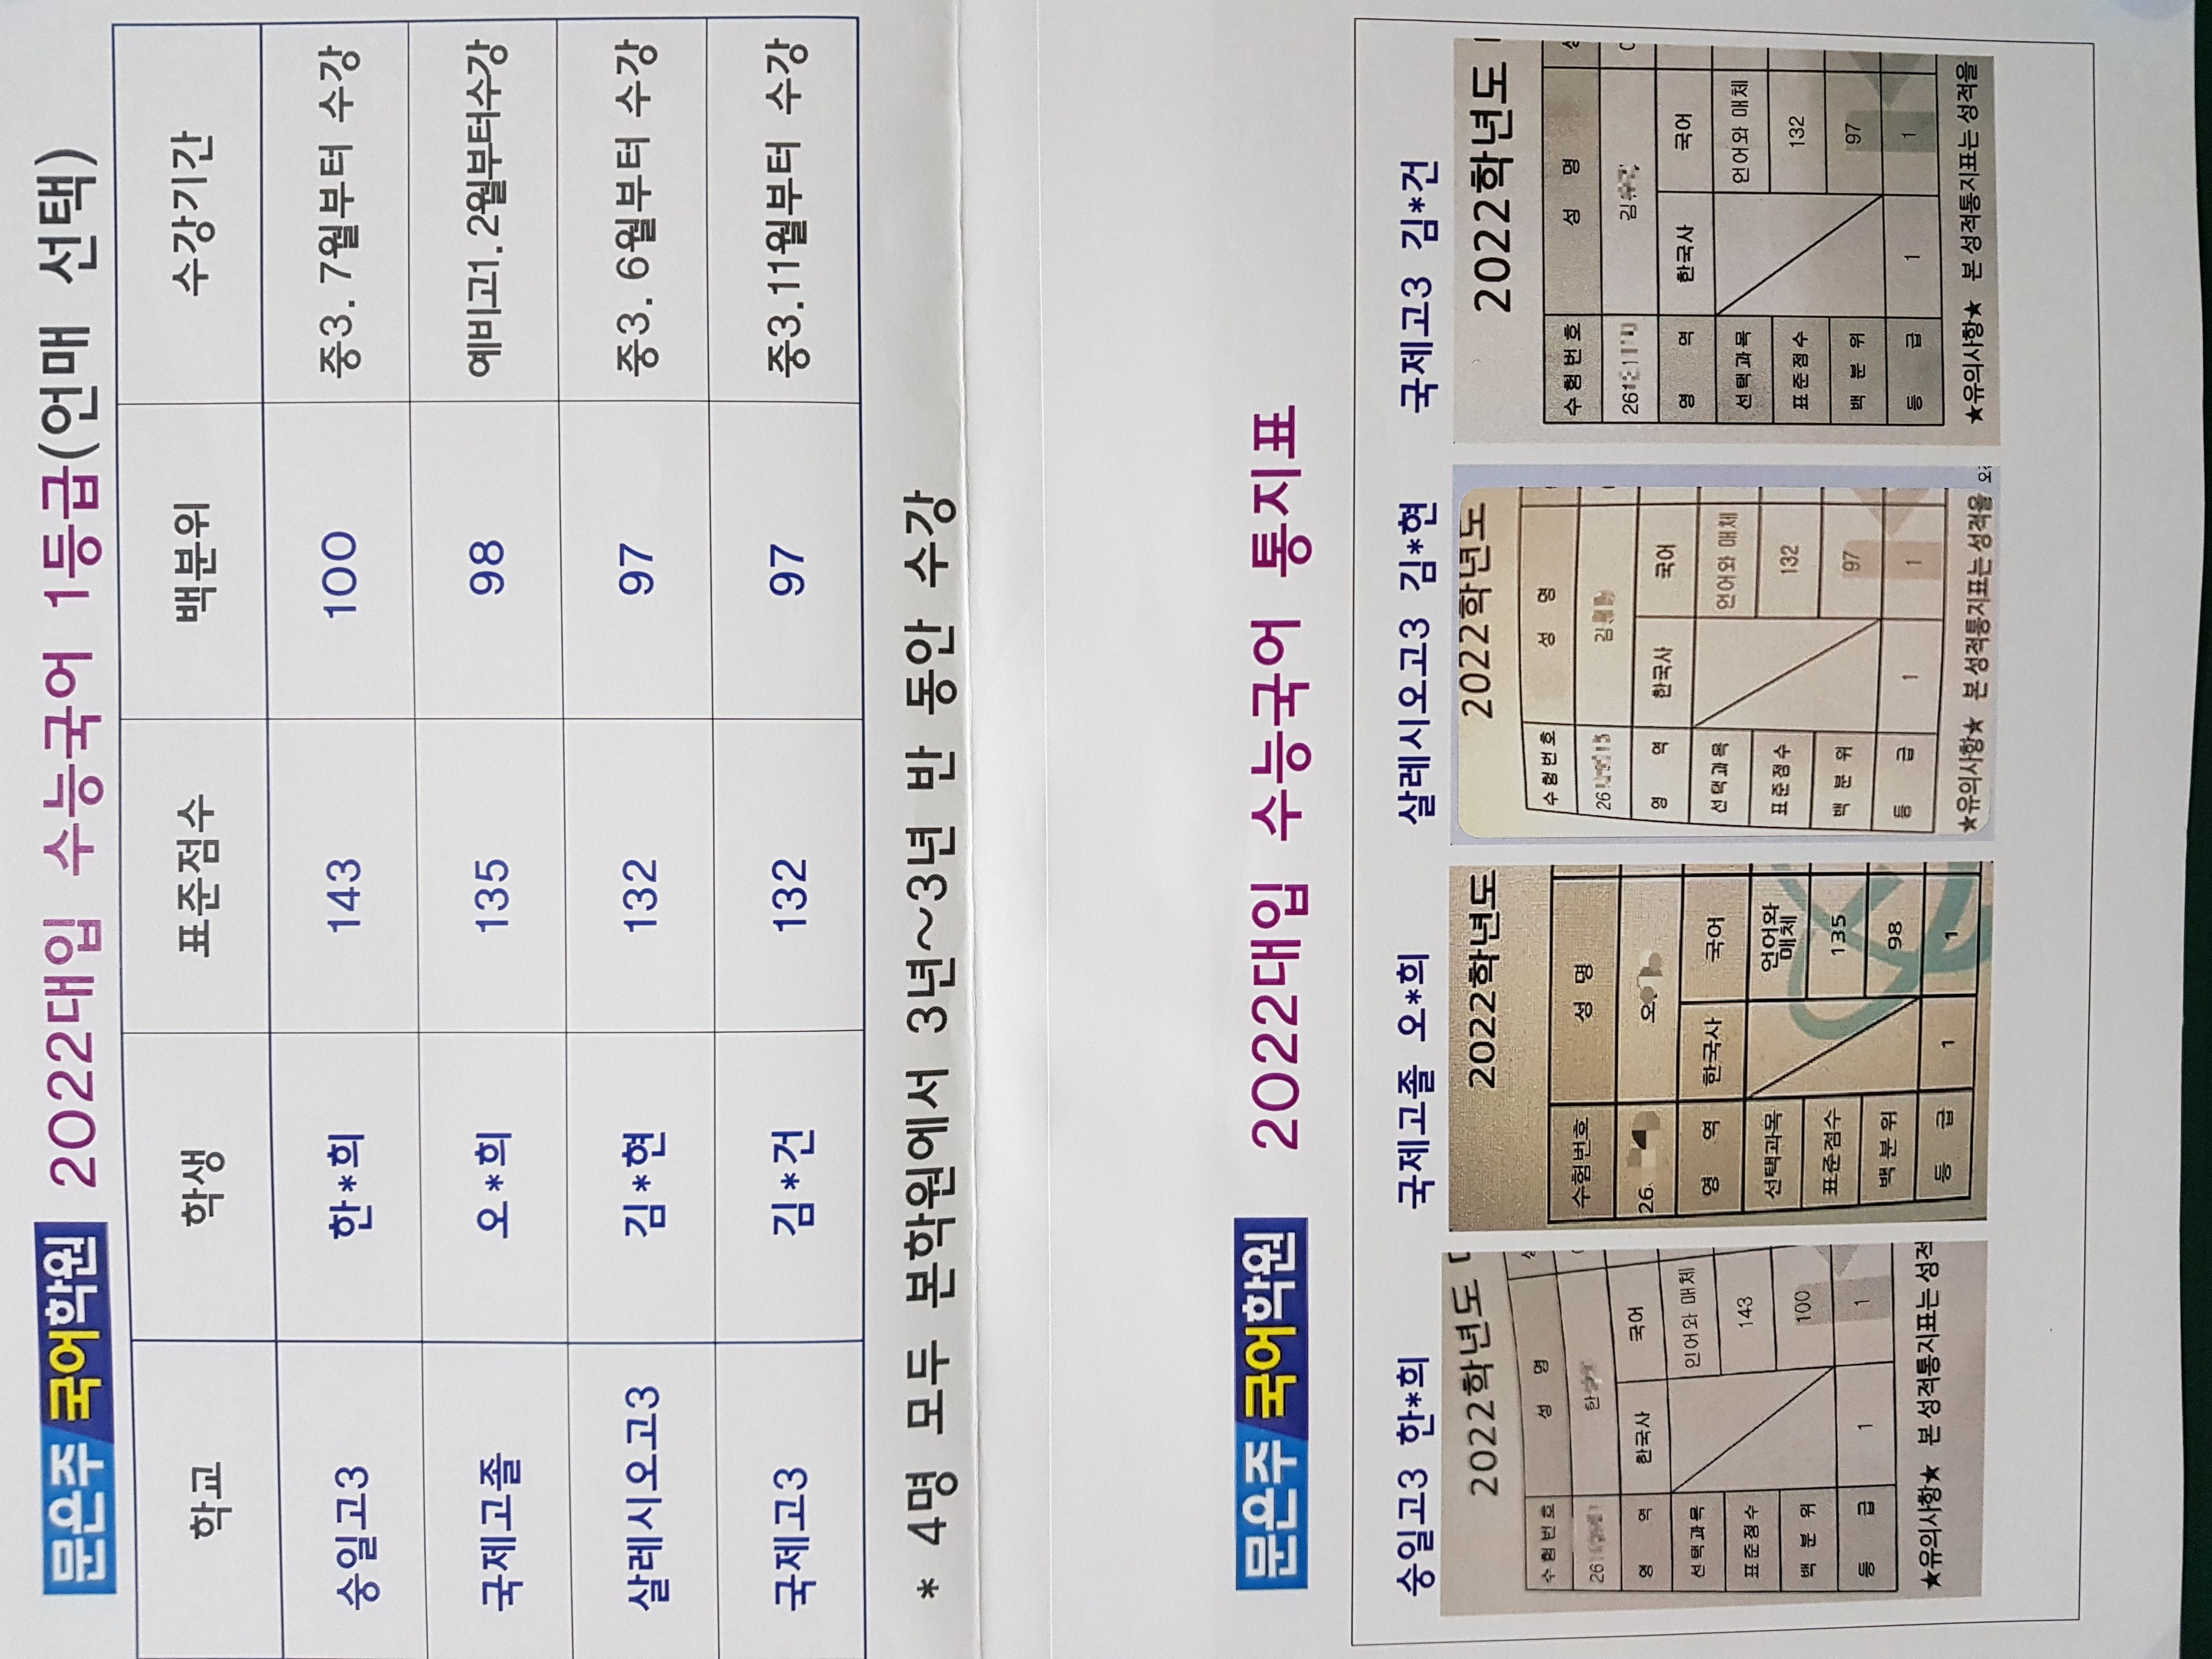 문은주 국어학원 2022대입 수능국어 1등급(언매 선택)
학교 학생 표준점수 백분위 수강기간
숭일고3 한*희 143 100 중3. 7월부터 수강
국제고졸 오*희 135 98 예비고1. 2월부터수강
살레시오고3 김*현 132 97 중3. 6월부터 수강
국제고3 김*건 132 97 중3.11월부터 수강
* 4명 모두 본학원에서 3년~3년 반 동안 수강
문은주 국어학원 2022대입 수능국어 통지표
숭일고3 한*희
2022학년도
수험번호 성 명
26 한
영 역 한국사 국어
선택과목 언어와 매체
표준점수 143
백 분 위 100
등 급 1 1
★유의사항★ 본 성적통지표는 성적
국제고졸 오*희
2022학년도
수험번호 성 명
26. 오
영 역 한국사 국어
선택과목 언어와
매체
표준점수 135
백 분 위 98
등 급 1 1
살레시오고3 김*현
2022학년도
수험번호 성 명
26 김
영 역 한국사 국어
선택과목 언어와 매체
표준점수 132
백 분 위 97
등 급 1 1
★유의사항★ 본 성적통지표는 성적을
국제고3 김*건
2022학년도
수험번호 성 명
26 김
영 역 한국사 국어
선택과목 언어와 매체
표준점수 132
백 분 위 97
등 급 1 1
★유의사항★ 본 성적통지표는 성적을